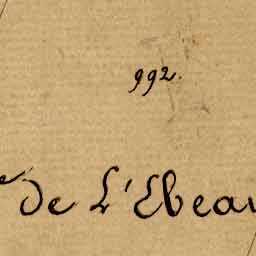 992.
de L'Ebeau